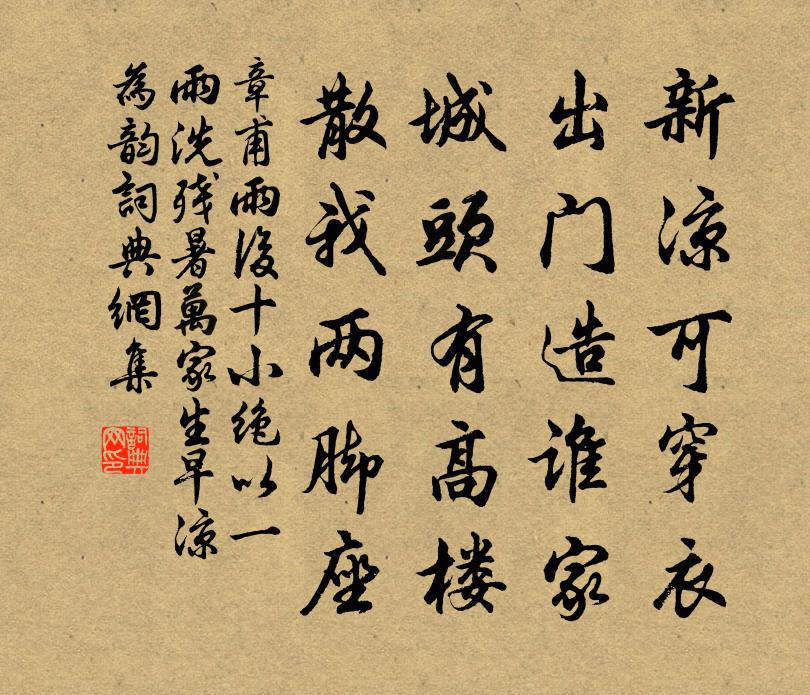 新凉可穿衣
出门造谁家
城頭有高楼
散我两脚座
章甫雨後十小绝以一
雨洗残暑萬家生早凉
為韵詞典網集
詞典
网印